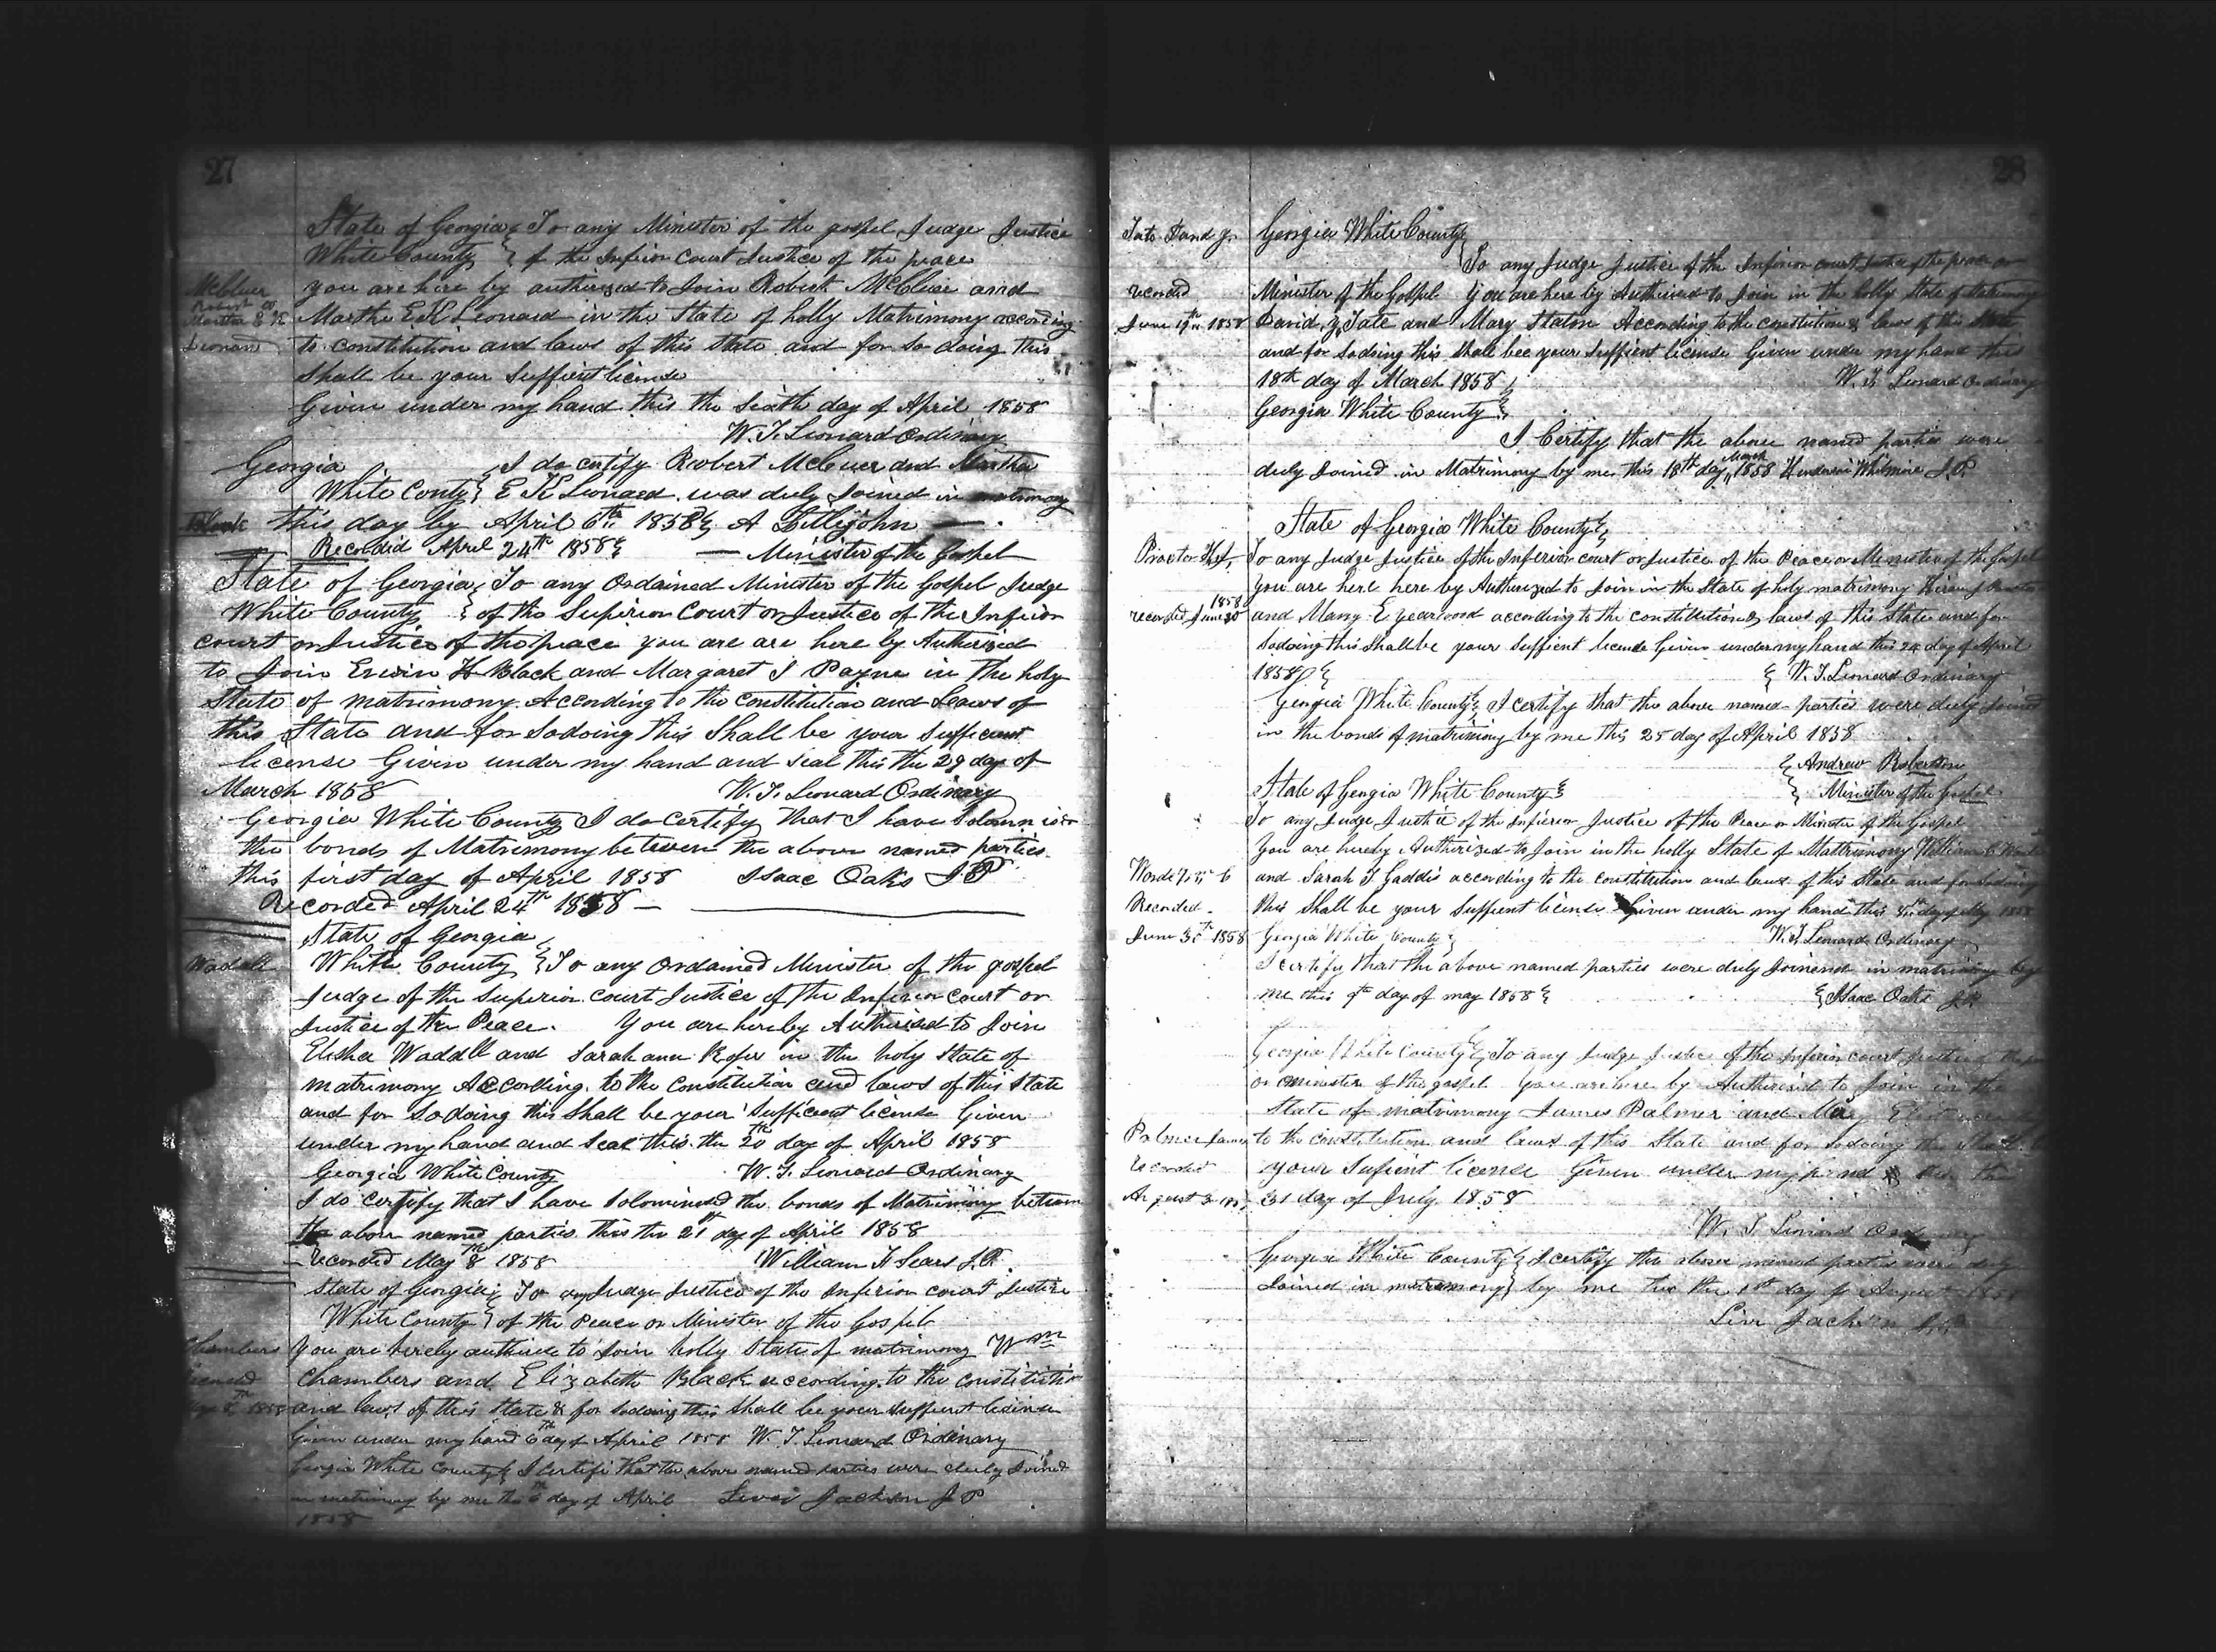 27
State of Georgia } To any Minister of the gospel, Judge Justice
White County } of the Inferior Court Justice of the peace
McCluer
you are here by authorized to Join Robert McCluer and
Martha E K
Martha E. K Leonard in the State of holly Matrimony according
Leonard
to constitution and laws of this state and for so doing this
Shall be your Suffient license
Given under my hand this the Sixth day of April 1858
W. T. Leonard Ordinary
Georgia } I do certify Robert McCluer and Martha
White Conty } E K Leonard was duly Joined in matrimony
Black
this day by April 6th 1858 } A Littlejohn
Recorded April 24th 1858 } Minister of the Gospel
State of Georgia } To any Ordained Minister of the Gospel Judge
White County } of the Superior Court or Justice of the Inferior
court or Justice of the peace you are are here by Authorized
to Join Erwin H Black and Margaret J Payne in the holy
State of matrimony According to the Constitution and Laws of
this State and for So doing this Shall be your Sufficient
license Given under my hand and seal this the 29 day of
March 1858 W. T. Leonard Ordinary
Georgia White County I do certify that I have
the bonds of Matrimony between the above named parties
this first day of April 1858 Isaac Oaks J P
Recorded April 24th 1858
State of Georgia
Waddell
White County } To any Ordained Minister of the gospel
Judge of the Superior court Justice of the Inferior Court or
Justice of the Peace. You are hereby Authorised to Join
Elisha Waddell and Sarah ann in the holy State of
matrimony According to the Constitution and laws of this State
and for So doing this Shall be your Sufficient license Given
under my hand and Seal this the 20th day of April 1858
Georgia White County W. T. Leonard Ordinary
I do certify that I have Solominised the bonds of Matrimony between
the above named parties this the 21st day of April 1858
recorded May 8th 1858 William H Sears J. P.
State of Georgia } To any Judge Justice of the Inferior court Justice
White County } of the Peace or Minister of the Gospel
Chambers
You are hereby authise to Join holly State of matrimony Wm
Chambers and Elizabeth Black according to the constitution
and laws of this State & for Sodoing this Shall be your Suffient license
Given under my hand 6th day of April 1858 W. T. Leonard Ordinary
Georgia White County } I Certifi that the above named parties were duly Joined
in matrimony by me the 6th day of April Levi Jackson J P
1858
28
Tate David
Georgia White County
To any Judge Justice of the Inferior court
recorded
Minister of the Gospel You are here by Authorised to Join in the holly State of Matrimony
June 19th 1858
David Tate and Mary Staton According to the constitution & laws of this State
and for Sodoing this Shall bee your Suffient license Given under my hand this
18th day of March 1858 W. T. Leonard Ordinary
Georgia White County
I Certify that the above named parties were
duly Joined in Matrimony by me this 18th day March 1858 Whitmire J. P.
State of Georgia White County
Proctor
To any Judge Justice of the Inferior court or Justice of the Peace or Minister of the Gospel
You are here here by Authorized to Join in the State of holy matrimony Hiram Proctor
recorded June 30 1858
and Marry E Yearwood according to the constitution & laws of this State and for
Sodoing this Shall be your Suffient license Given under my hand this 24 day of April
1858 W. T. Leonard Ordinary
Georgia White County } I certify that the above named parties were duly Joined
in the bonds of matrimony by me this 25 day of April 1858
Andrew Robertson
State of Georgia White County Minister of the Gospel
To any Judge Justice of the Inferior Justice of the Peace or Minister of the Gospel
You are hereby Authorized to Join in the holly State of Mattrimony William
and Sarah J Gaddis according to the constitution and laws of this State and for Sodoing
Recorded
this Shall be your Suffient license Given under my hand this day of May 1858
June 30th 1858
Georgia White County W. T. Leonard Ordinary
I certify that the above named parties were duly Joinend in matrimony by
me this 9th day of may 1858 Isaac Oaks J. P.
Georgia White County } To any Judge Justice of the Inferior court Justice of the
or minister of the gospel You are here by Authorised to Join in the
State of matrimony James Palmer and Mary
Palmer James
to the constitution and laws of this State and for Sodoing this Shall
recorded
your Sufient license Given under my hand this the
August
31 day of July 1858
W. T. Leonard Ordinary
Georgia White County } I certify the above named parties were duly
Joined in matrimony } by me this the 1st day of August 1858
Levi Jackson J. P.